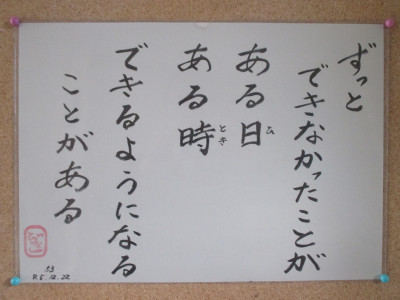 ずっと
できなかったことが
ある日
ある時
できるようになる
ことがある
ひ
とき